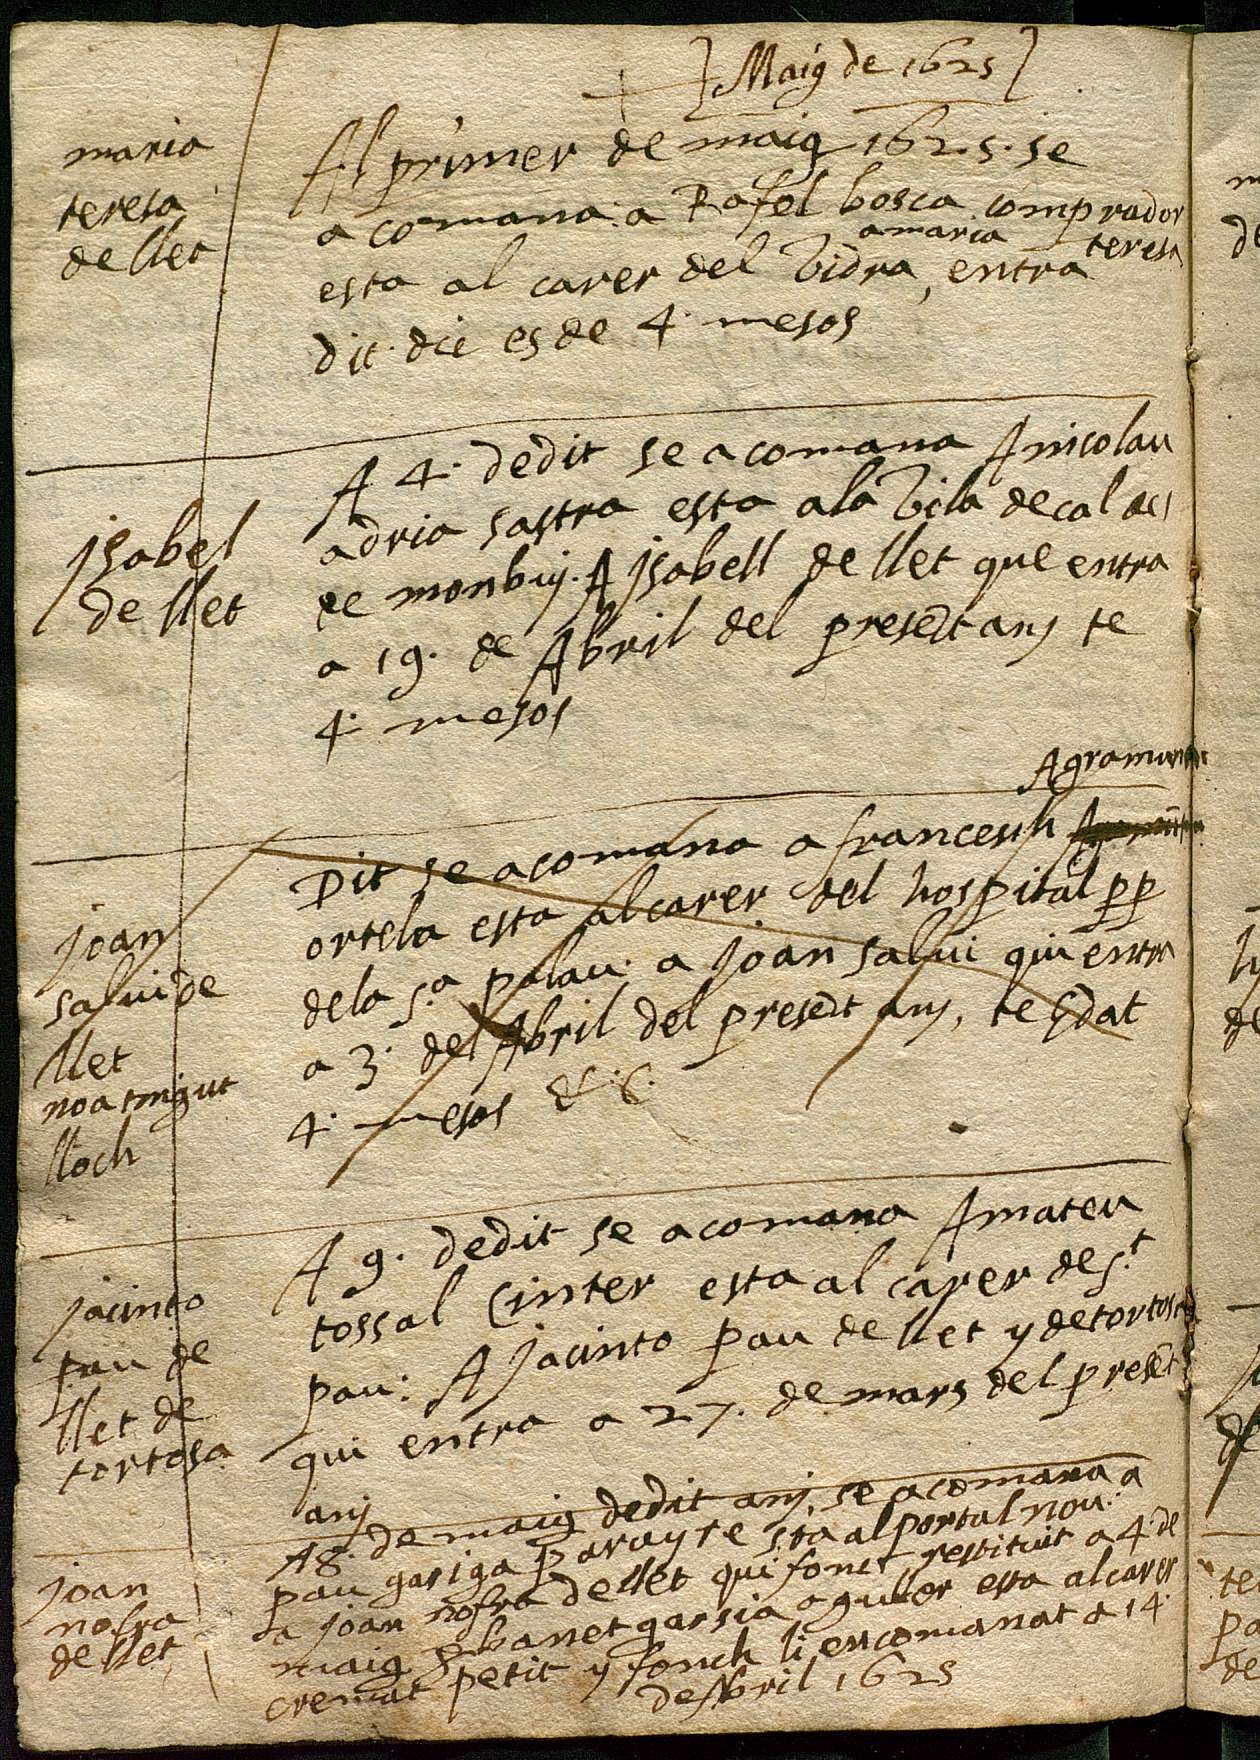 Maig de 1625
maria
teresa
de llet
Al primer de maig 1625. se
acomana. a Rafel bosca comprador
a maria teresa
esta al carer del Vidra, entra
dit. die es de 4. mesos
Isabel
de llet
A 4. dedit se acomana A nicolau
adria sastra esta ala Vila de caldes
de monbuy. A Isabell de llet que entra
a 19. de Abril del present any te
4. mesos
Agramunt
Joan
salvi de
llet
no a tingut
lloch
Dit se acomana a francesch
ortela esta al carer del hospital pp
dela s.ª palau. a Joan salvi qui entra
a 3. del Abril del present any, te Edat
4. mesos &.c.
Jacinto
pau de
llet de
tortosa
A 9. dedit se acomana A mateu
tossal Cinter esta al carer de s.t
pau: A Jacinto pau de llet y de tortosa
qui entra a 27. de mars del present
any
Joan
nofra
de llet
A 8. de maig dedit any, se acomana a
pau gariga parayre sta al portal nou: a
a Joan nofra de llet qui fonch restituit a 4 de
maig banet garsia aguller esta al carer
cremat petit y fonch li encomanat a 14
de Abril 1625